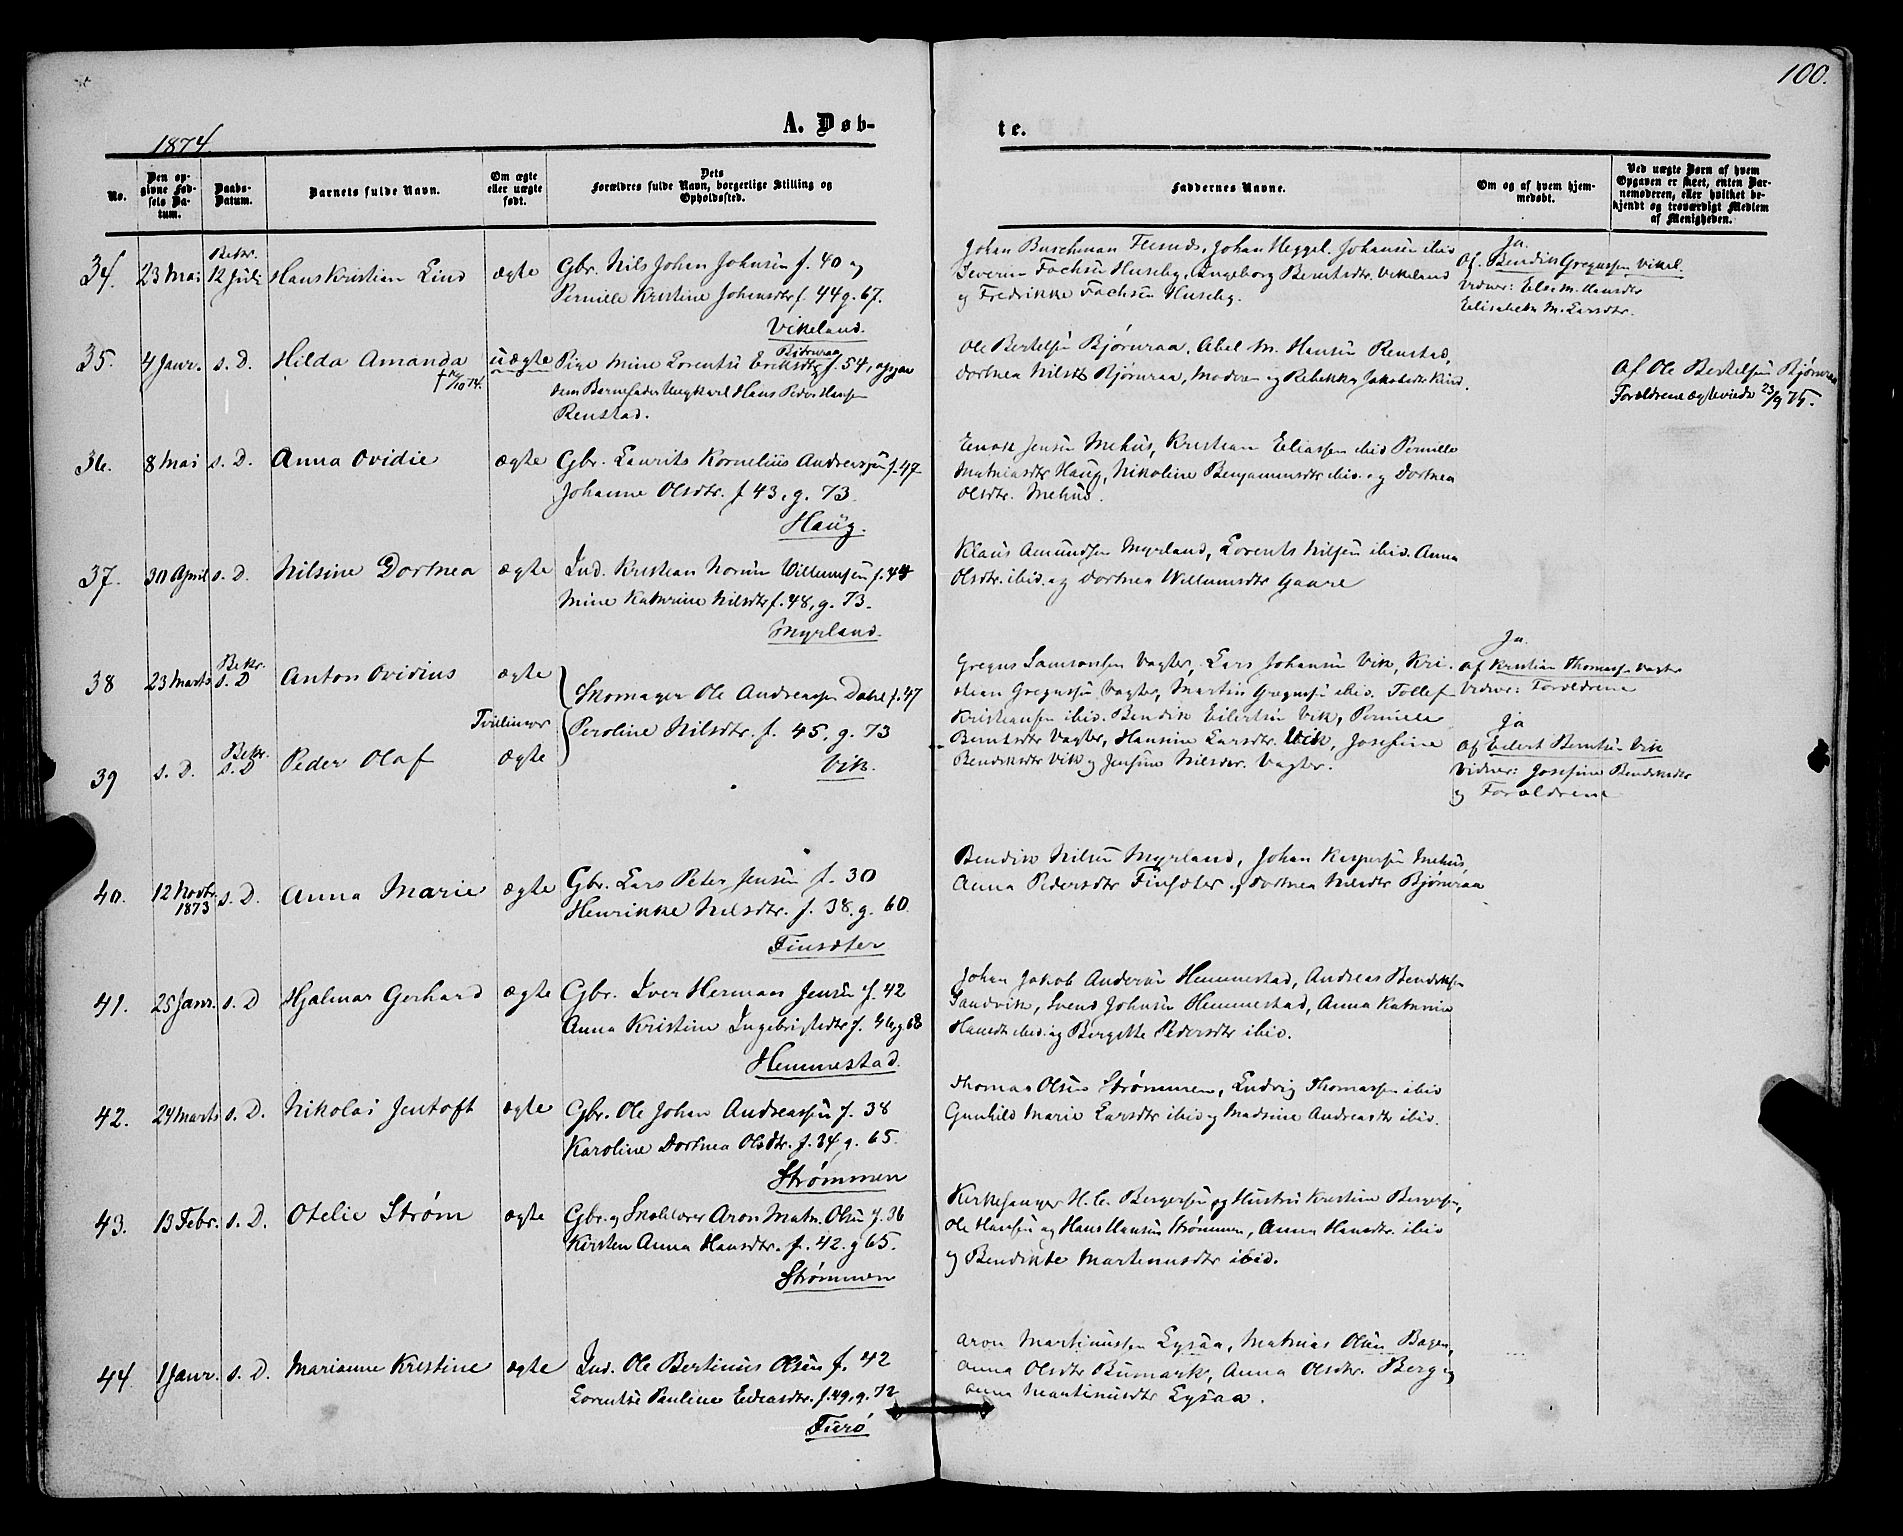 100.
1874
A. Døb-
te.
No.
Den opgivne Fødsels Datum.
Daabs-Datum.
Barnets fulde Navn.
Om ægte eller uægte født.
Dets Forældres fulde Navn, borgerlige Stilling og Opholdssted.
Faddernes Navne.
Om og af hvem hjemmedøbt.
Ved uægte Børn af hvem Opgaven er skeet, enten Barnemoderen, eller hvilket bekjendt og troværdigt Medlem af Menigheden.
34. 23 Mai Bekr. 12 Juli Hans Kristian Lind ægte Gbr. Nils Johan Johnsen f. 40 og
Pernille Kristine Johensdtr f. 44 g. 67.
Vikeland.
Johan Buschman Johan Heggel. Johansen ibid
Severin Huseby, Ingeborg Berntsdtr. Vikeland
og Fredrikke Huseby.
Ja
Af. Bendik Gregussen Vikel.
Vidner: Else M. Hansdtr
Elisabeth M. Larsdtr.
35. 4 Janr. s. D. Hilda Amanda uægte Pige Mine Lorentse Eriksdtr Bjørnraa f. 54, opgav
som Barnefader Ungkarl Hans Peder Hansen
Renstad.
Ole Bertelsen Bjørnraa, Abel M. Hansen Renstad,
Dorthea Nilsdtr Bjørnraa, Moderen og Rebekka Jakobsdtr Rind.
Af Ole Bertelsen Bjørnraa
Forældrene ægteviede 23/9 75.
36. 8 Mai s. D. Anna Ovidie ægte Gbr. Laurits Kornelius Andreassen f. 47
Johanne Olsdtr. f 43, g. 73.
Haug.
Enok Jensen Mehus, Kristian Eliassen ibid Pernille
Mathiasdtr Haug, Nikoline Benjaminsdtr ibid. og Dorthea
Olsdtr. Mehus.
37. 30 April s. D. Nilsine Dorthea ægte Ind. Kristian Norum Willumsen f. 44
Mine Kathrine Nilsdtr f. 48, g. 73.
Myrland.
Klaus Amundsen Myrland, Lorents Nilsen ibid. Anna
Olsdtr. ibid. og Dorthea Willumsdtr Gaare
38 23 Marts Bekr. s. D Anton Ovidius ægte
Skomager Ole Andreassen Dahl f. 47
Tvillinger
Peroline Nilsdtr. f. 45, g. 73
39 s. D. Bekr. s. D Peder Olaf ægte
Vik.
Gregus Samsonsen Vagter, Lars Johansen Vik, Kri-
stian Gregussen Vagter, Martin Gregussen ibid. Tollef
Kristiansen ibid. Bendik Eilertsen Vik, Pernilla
Berntsdtr Vagter, Hansine Larsdtr. Vik, Josefine
Bendiksdtr Vik og Jensine Nilsdtr. Vagter.
Ja
Af Kristian Thomassen Vagter
Vidner: Forældrene
Ja
Af Eilert Berntsen Vik
Vidner: Josefine Bendiksdtr
og Forældrene
40. 12 Novbr. 1873 s. D. Anna Marie ægte Gbr. Lars Peter Jensen f. 30
Henrikke Nilsdtr. f. 38. g. 60
Finsæter
Bendik Nilsen Myrland, Johan Kaspersen Mehus,
Anna Pedersdtr Finsæter og Dorthea Nilsdtr Bjørnraa
41. 25 Janr. s. D Hjalmar Gerhard ægte Gbr. Iver Herman Jensen f. 42
Anna Kristine Ingebrigtsdtr f. 46 g 68
Hemmestad.
Johan Jakob Andersen Hemmestad, Andreas Bendiksen
Sandvik, Svend Johnsen Hemmestad, Anna Kathrine
Hansdtr ibid. og Bergitte Pedersdtr ibid.
42. 24 Marts s. D. Nikolai Jentoft ægte Gbr. Ole Johan Andreassen f. 38
Karoline Dorthea Olsdtr. f. 34 g. 65.
Strømmen
Thomas Olsen Strømmen, Ludvig Thomassen ibid
Gunhild Marie Larsdtr ibid og Madsine Andreasdtr ibid.
43. 13 Febr. s. D. Otelie Strøm ægte Gbr. og Skolelærer Aron Math. Olsen f. 36
Kirsten Anna Hansdtr. f. 42. g 65.
Strømmen
Kirkesanger H. C. Bergersen og Hustru Kristine Bergersen,
Ole Hansen og Hans Hansen Strømmen, Anna Hansdtr. ibid
og Bendikte Martinusdtr ibid.
44. 1 Janr. s. D. Marianne Kristine ægte Ind. Ole Bertinius Olsen f. 42
Lorentse Pauline Eidisdtr. f. 49, g. 72
Furø
Aron Martinussen Lysaa, Mathias Olsen Bogen,
Anna Olsdtr Bumark, Anna Olsdtr. Berg og
Anna Martinusdtr Lysaa.